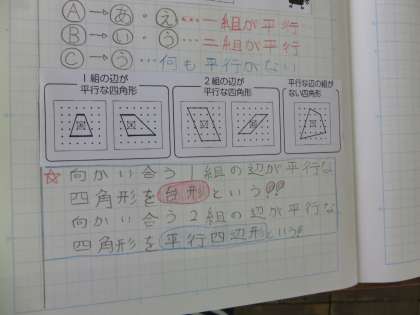 Ⓐ→あ・え…一組が平行
Ⓑ→い・う…二組が平行
Ⓒ→う…何も平行がない
1組の辺が
平行な四角形
2組の辺が
平行な四角形
平行な辺の組が
ない四角形
☆向かい合う1組の辺が平行な
四角形を台形という!!
向かい合う2組の辺が平行な
四角形を平行四辺形という!